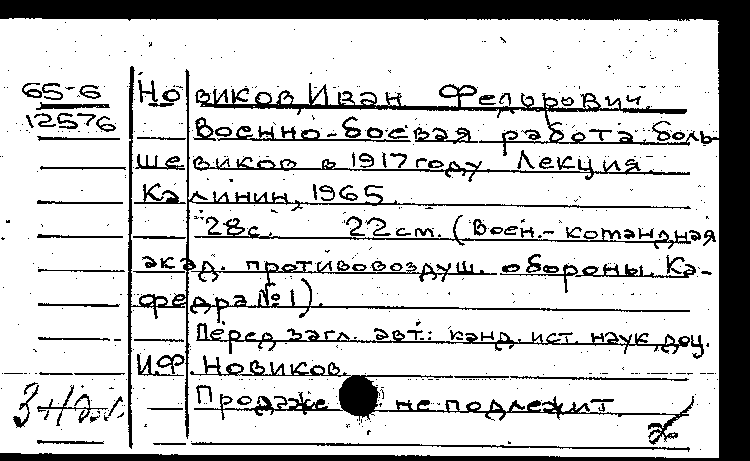 65-6 Новиков, Иван Федорович.
12576 Военно-боевая работа боль-
шевиков в 1917 году. Лекция.
Калинин, 1965.
28с. 22см. (Воен.-командная
акад. противовоздуш. обороны. Ка-
федра №1).
Перед загл. авт.: канд. ист. наук, доц.
И.Ф. Новиков.
Продаже не подлежит.